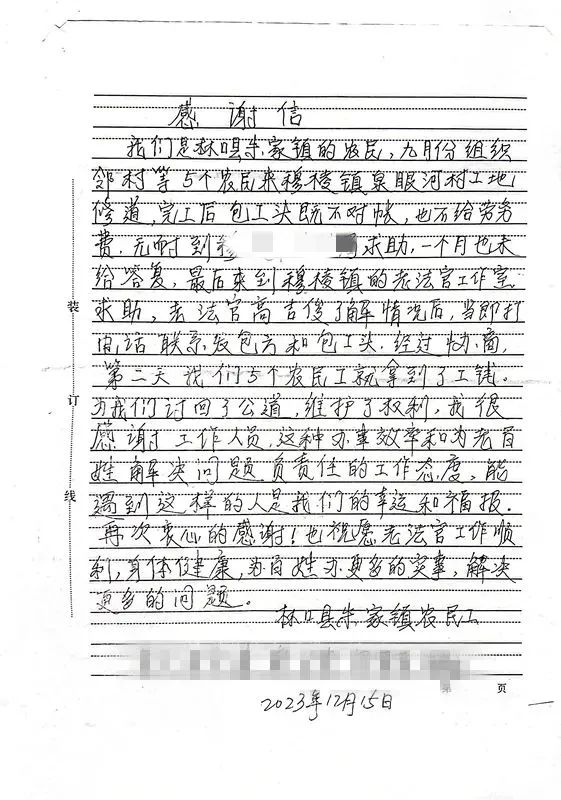 感谢信
我们是林口县朱家镇的农民,九月份组织
邻村等5个农民来穆棱镇泉眼河村工地
修道,完工后包工头既不对帐,也不给劳务
费.无耐到穆 求助,一个月也未
给答复,最后来到穆棱镇的老法官工作室
求助,老法官高吉俊了解情况后,当即打
电话联系发包方和包工头.经过协商,
第二天我们5个农民工就拿到了工钱。
为我们讨回了公道,维护了权利,我很
感谢工作人员,这种办事效率和为老百
姓解决问题负责任的工作态度,能
遇到这样的人是我们的幸运和福报.
再次衷心的感谢!也祝愿老法官工作顺
利,身体健康,为百姓办更多的实事,解决
更多的问题。
林口县朱家镇农民工
第 页
2023年12月15日
装
订
线